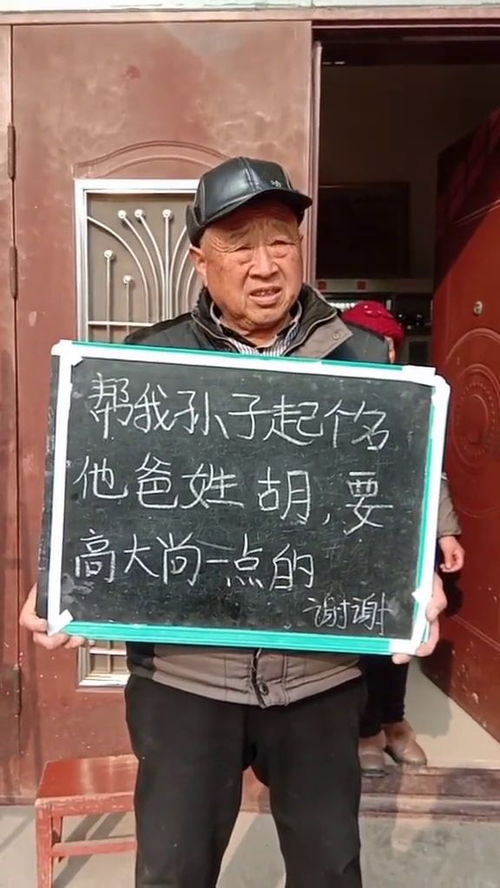 帮我孙子起个名
他爸姓胡，要
高大尚一点的
谢谢